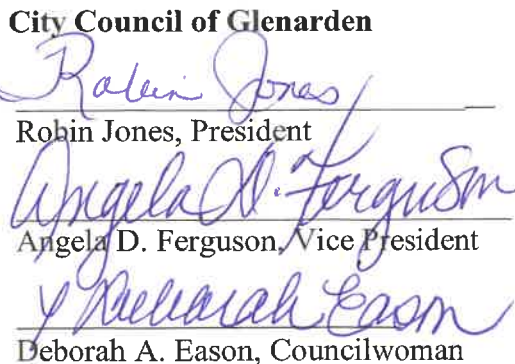 City Council of Glenarden
Robin Jones
Robin Jones, President
Angela D. Ferguson
Angela D. Ferguson, Vice President
Deborah Eason
Deborah A. Eason, Councilwoman